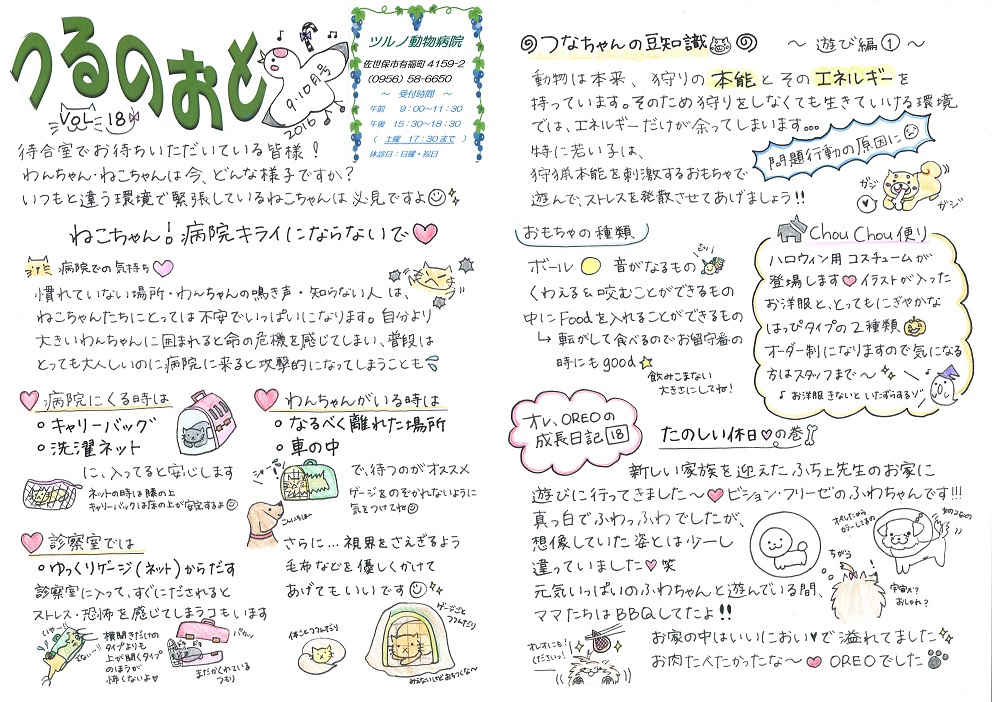 つるのおと
VOL 18
9・10月号
2016
ツルノ動物病院
佐世保市有福町4159-2
(0956) 58-6650
～ 受付時間 ～
午前 9:00～11:30
午後 15:30～18:30
( 土曜 17:30まで )
休診日:日曜・祝日
待合室でお待ちいただいている皆様!
わんちゃん・ねこちゃんは今、どんな様子ですか?
いつもと違う環境で緊張しているねこちゃんは必見ですよ
ねこちゃん!病院キライにならないで♥
病院での気持ち
慣れていない場所・わんちゃんの鳴き声・知らない人 は、
ねこちゃんたちにとっては不安でいっぱいになります。自分より
大きいわんちゃんに囲まれると命の危機を感じてしまい、普段は
とっても大人しいのに病院に来ると攻撃的になってしまうことも
♥病院にくる時は
○キャリーバッグ
○洗濯ネット
に、入ってると安心します
ネットの時は膝の上
キャリーバックは床の上が安定するよ
♥わんちゃんがいる時は
○なるべく離れた場所
○車の中
で、待つのがオススメ
ゲージをのぞかれないように
気をつけてね
シャーッ
こんにちはー
さらに…視界をさえぎるよう
毛布などを優しくかけて
あげてもいいです
♥診察室では
○ゆっくりゲージ(ネット)からだす
診察室に入って、すぐにだされると
ストレス・恐怖を感じてしまうコもいます
いやー
でない
横開きだけの
タイプよりも
上が開くタイプ
のほうが
怖くないよ♥
パカッ
まだかくれている
つもり
体ごとフんわり
ゲージごと
フんわり
みえないしおちつくな～
つなちゃんの豆知識
～ 遊び編① ～
動物は本来、狩りの本能とそのエネルギーを
持っています。そのため狩りをしなくても生きていける環境
では、エネルギーだけが余ってしまいます…
問題行動の原因に
特に若い子は、
狩猟本能を刺激するおもちゃで
遊んで、ストレスを発散させてあげましょう!!
ガジ
ガジ
おもちゃの種類
ボール
音がなるもの
ピッ
くわえる&咬むことができるもの
中にFoodを入れることができるもの
↳ 転がして食べるのでお留守番の
時にもgood
飲みこまない
大きさにしてね!
Chou Chou便り
ハロウィン用コスチュームが
登場します♥イラストが入った
お洋服と、とってもにぎやかな
はっぴタイプの2種類
オーダー制になりますので気になる
方はスタッフまで～
♪お洋服きないといたずらするゾ
オレ、OREOの
成長日記18
たのしい休日♥の巻
新しい家族を迎えたふちょ先生のお家に
遊びに行ってきました～♥ビション・フリーゼのふわちゃんです!!!
真っ白でふわっふわでしたが、
想像していた姿とは少し
違っていました♥笑
元気いっぱいのふわちゃんと遊んでいる間、
ママたちはBBQしてたよ!!
ちがう
宇宙犬?
おしゃれ?
オレにも!
くださいっ!
お家の中はいいにおい♥で溢れてました
お肉たべたかったな～♥OREOでした